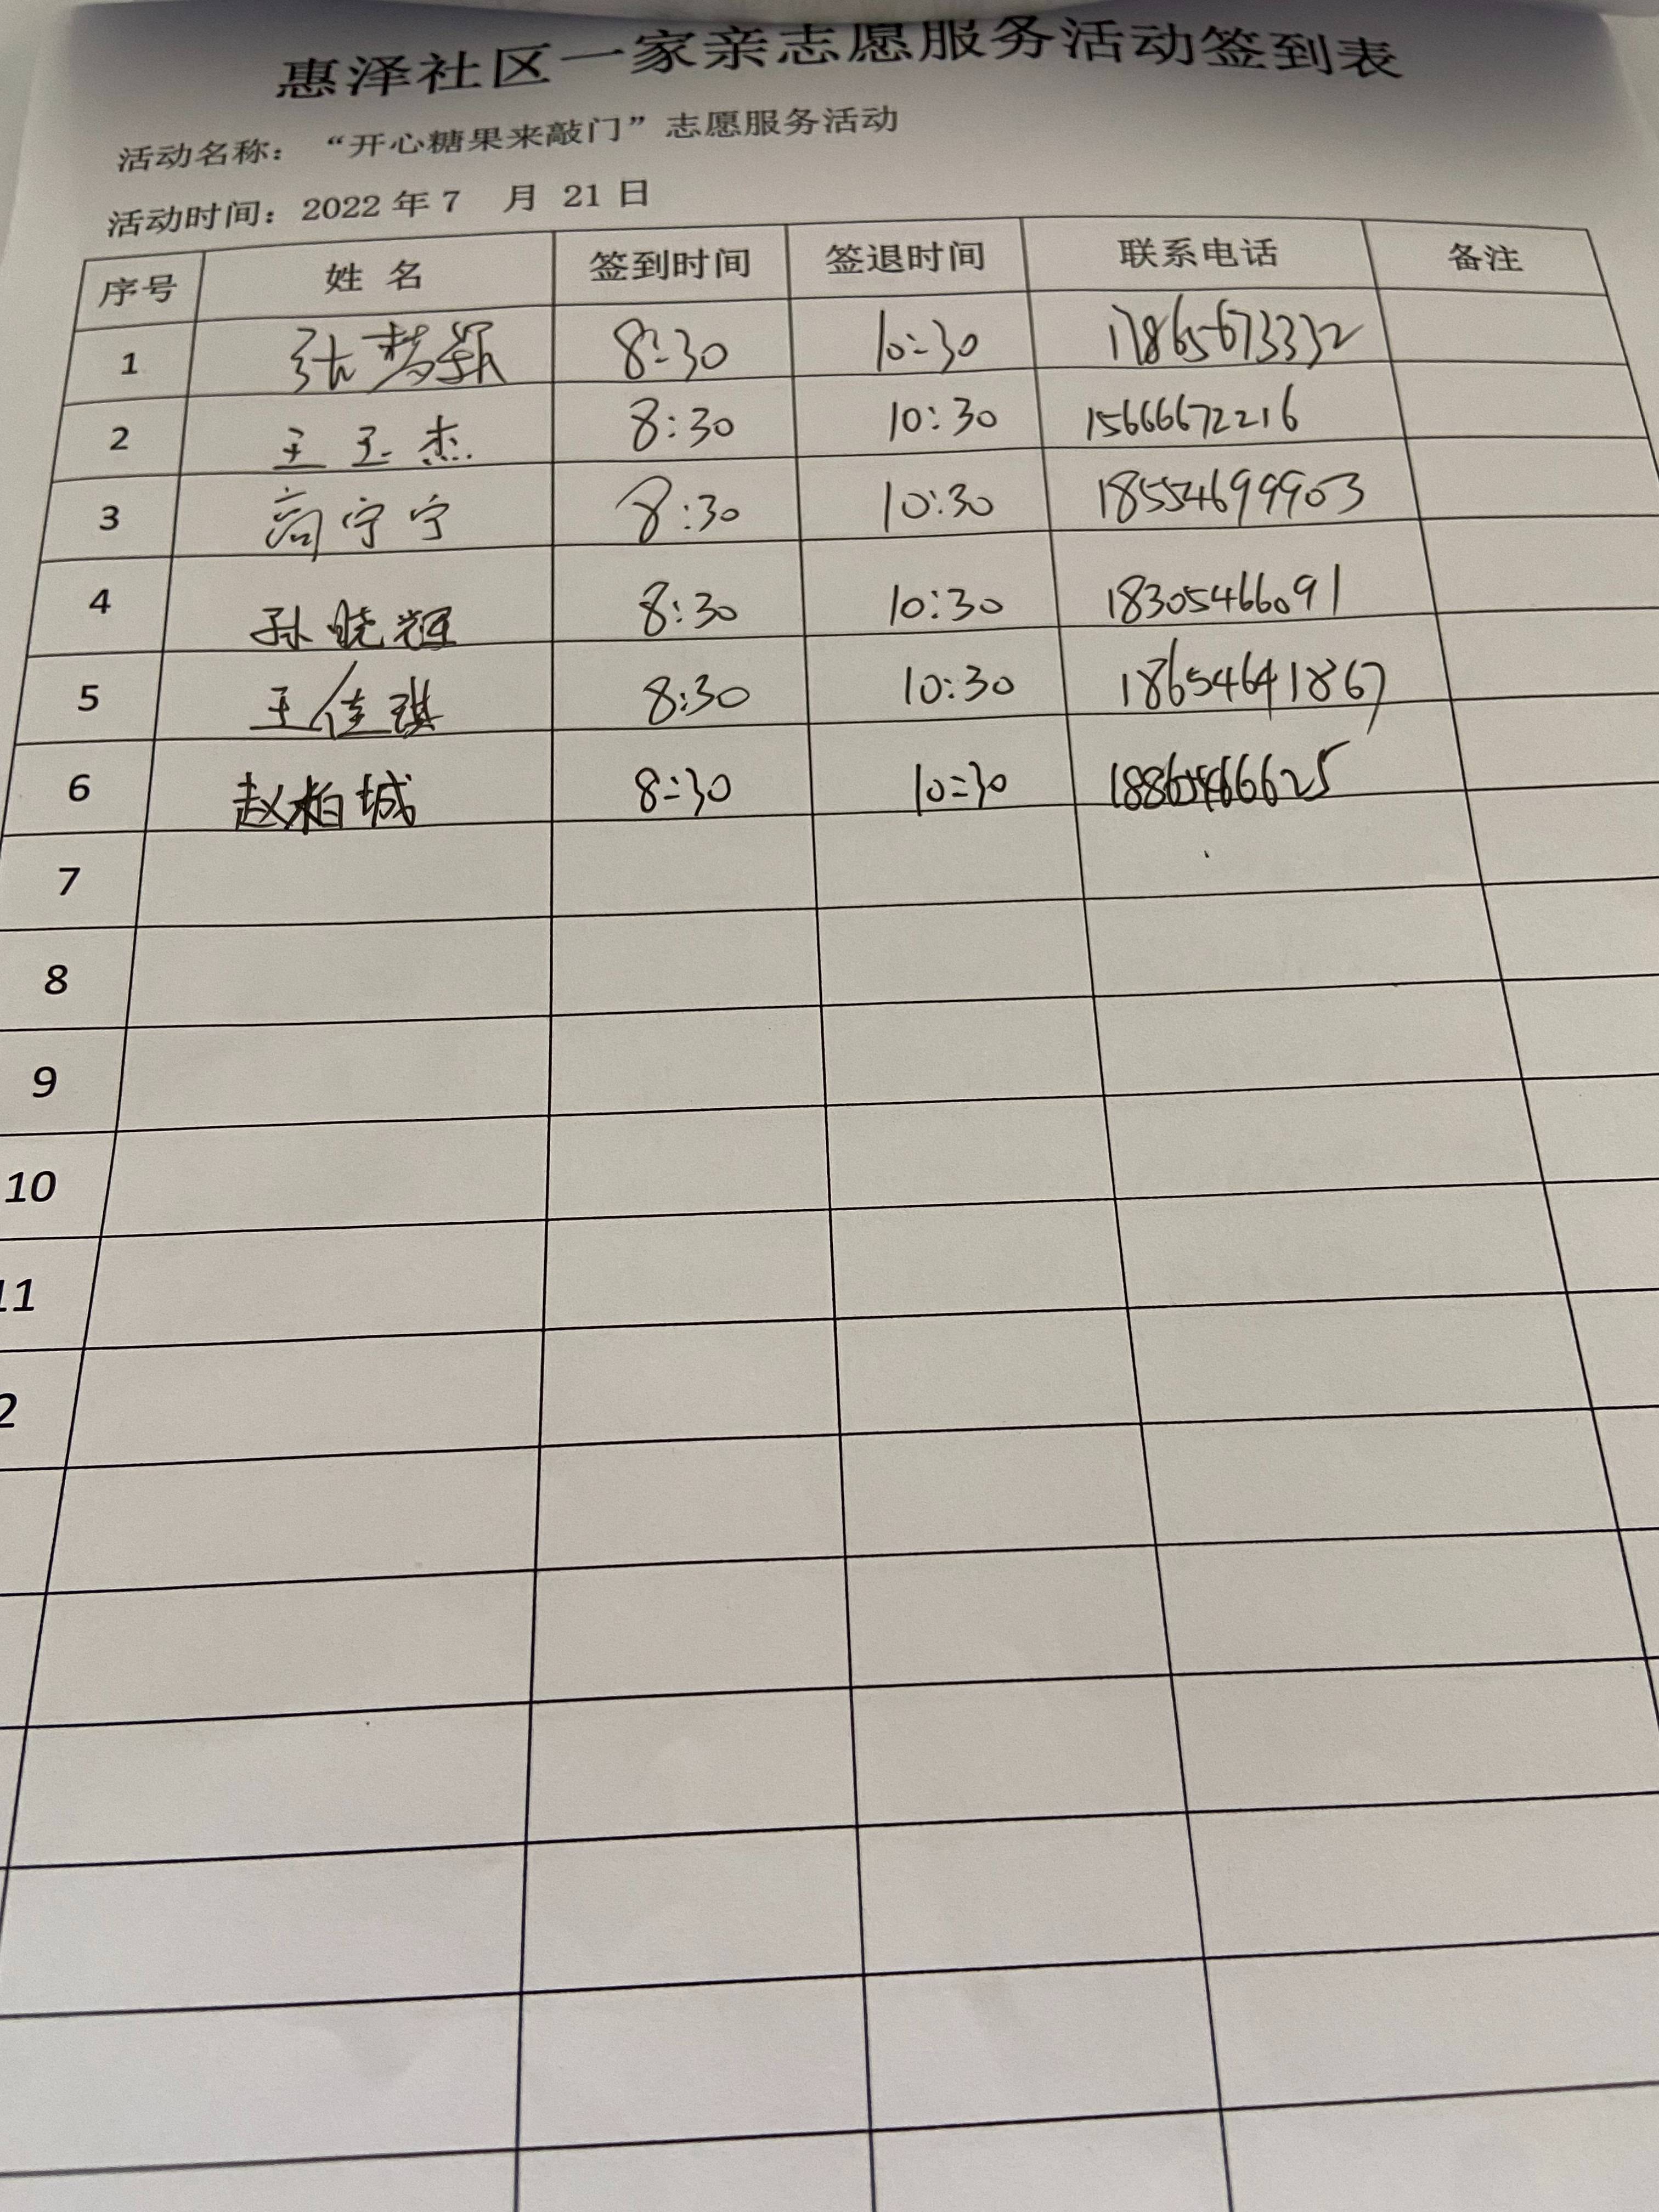 惠泽社区一家亲志愿服务活动签到表
活动名称：“开心糖果来敲门”志愿服务活动
活动时间：2022 年 7 月 21 日
序号 姓 名 签到时间 签退时间 联系电话 备注
1 张梦颖 8:30 10:30 17865673332
2 王玉杰 8:30 10:30 15666672216
3 高宁宁 8:30 10:30 18554699903
4 孙晓辉 8:30 10:30 18305466091
5 王佳琪 8:30 10:30 18654641867
6 赵柏城 8:30 10:30
7
8
9
10
11
2